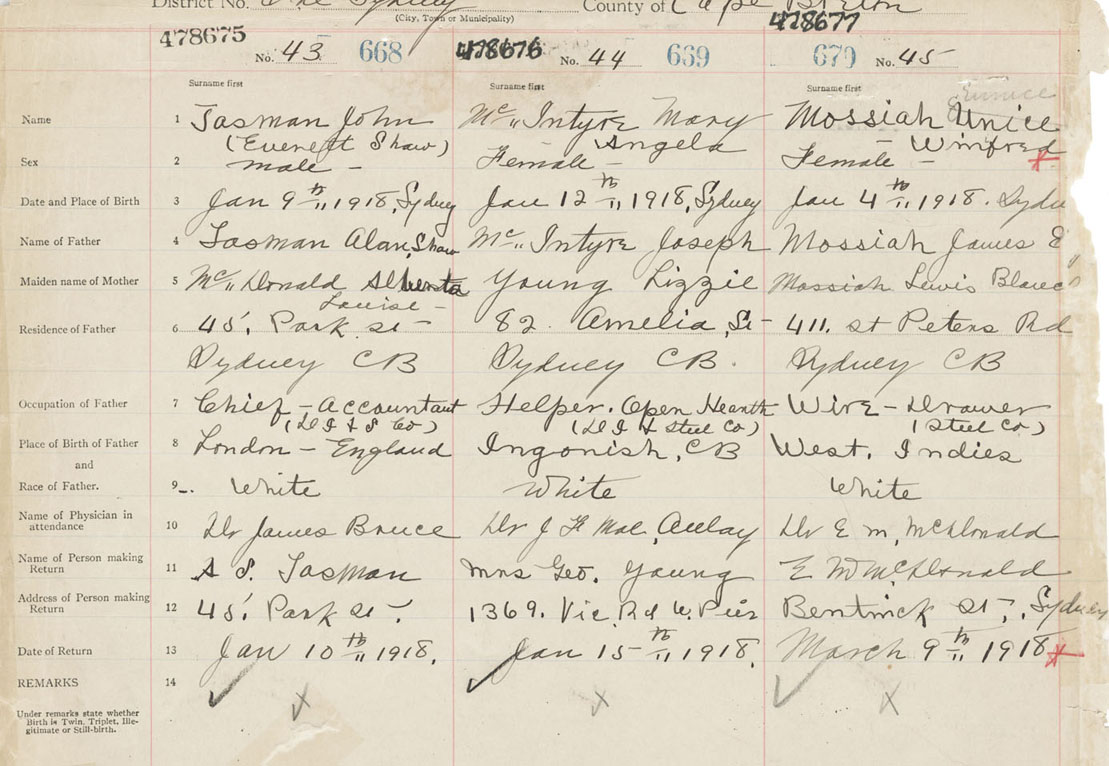 District No. One Sydney County of Cape Breton
(City, Town or Municipality)
478675 478676 478677
No. 43 668 No. 44 669 670 No. 45
Surname first Surname first Surname first
Eunice
Name 1 Tasman John Mc" Intyre Mary Mossiah Unice
(Everett Shaw) Angela Winifred
Sex 2 male - Female - Female -
Date and Place of Birth 3 Jan 9th" 1918, Sydney Jan 12th" 1918, Sydney Jan 4th" 1918. Sydn
Name of Father 4 Tasman Alan, Shaw Mc" Intyre Joseph Mossiah James E
Maiden name of Mother 5 Mc" Donald Alberta Young Lizzie Mossiah Lewis Blanc
Louise -
Residence of Father 6 45, Park St - 82. Amelia, St - 411. St Peters Rd
Sydney CB Sydney CB. Sydney CB
Occupation of Father 7 Chief - Accountant Helper. Open Hearth Wire - Drawer
(D I & S Co) (D I & Steel Co) (Steel Co)
Place of Birth of Father 8 London - England Ingonish, CB West. Indies
and
Race of Father. 9 White White White
Name of Physician in
attendance 10 Dr James Bruce Dr J F Mac, Aulay Dr E m, McDonald
Name of Person making
Return 11 A S. Tasman Mrs Geo. Young E M McDonald
Address of Person making
Return 12 45, Park St - 1369. Vic, Rd W. Pier Bentinck St -, Sydney
Date of Return 13 Jan 10th" 1918. Jan 15th" 1918. March 9th" 1918
REMARKS 14
Under remarks state whether
Birth is Twin, Triplet, Ille-
gitimate or Still-birth.